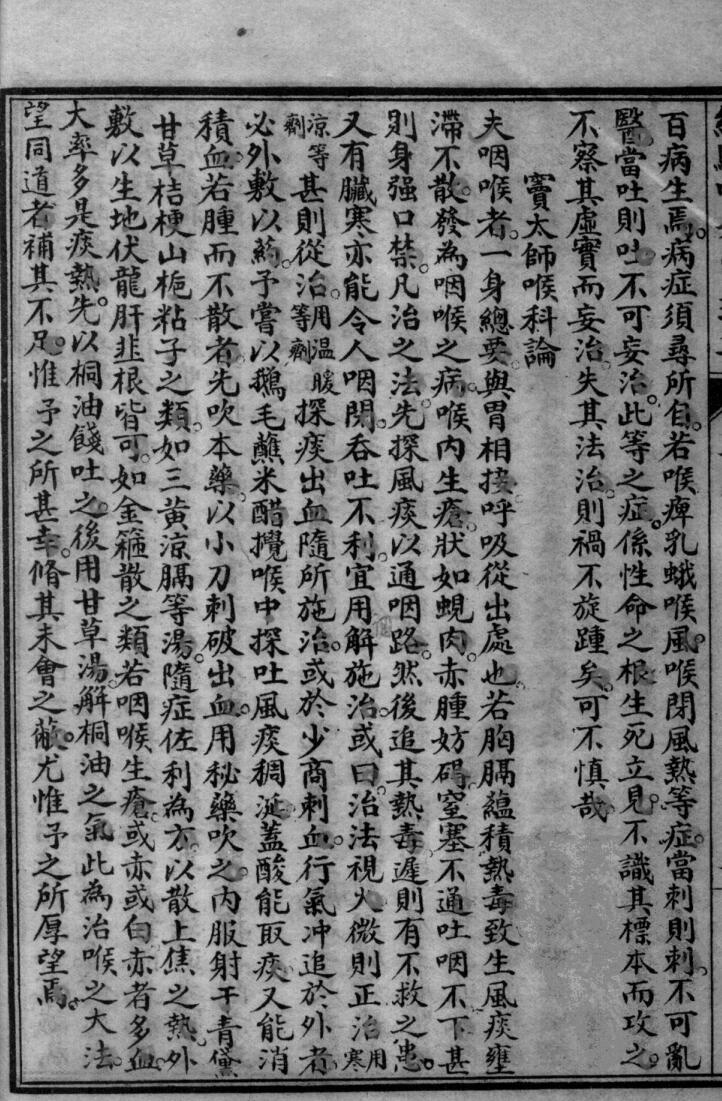 百病生焉。病症須尋所自。若喉痺乳蛾喉風喉閉風熱等症。當刺則刺。不可亂
醫。當吐則吐。不可妄治。此等之症。係性命之根。生死立見。不識其標本而攻之。
不察其虛實而妄治。失其法治。則禍不旋踵矣。可不慎哉。
竇太師喉科論
夫咽喉者。一身總要。與胃相接。呼吸從出處也。若胸膈蘊積熱毒。致生風痰壅
滯不散。發為咽喉之病。喉內生瘡。狀如蜆肉。赤腫妨碍。窒塞不通。吐咽不下。甚
則身强口禁。凡治之法。先探風痰以通咽路。然後追其熱毒。遲則有不救之患。
又有臟寒亦能令人咽閉。吞吐不利。宜用解施治。或曰治法視大微則正治用寒
涼等劑甚則從治。用温暖等劑探痰出血。隨所施治。或於少商刺血。行氣冲追於外者。
必外敷以藥。予嘗以鵝毛蘸米醋攪喉中。探吐風痰稠涎。蓋酸能取痰。又能消
積血。若腫而不散者。先吹本藥。以小刀刺破出血。用秘藥吹之。內服射干青黛
甘草桔梗山梔粘子之類。如三黄涼膈等湯。隨症佐利為方。以散上焦之熱。外
敷以生地伏龍肝韭根皆可。如金箍散之類。若咽喉生瘡。或赤或白。赤者多血。
大率多是痰熱。先以桐油餞吐之。後用甘草湯。解桐油之氣。此為治喉之大法。
望同道者補其不足。惟予之所甚幸。脩其未會之蔽。尤惟予之所厚望焉。